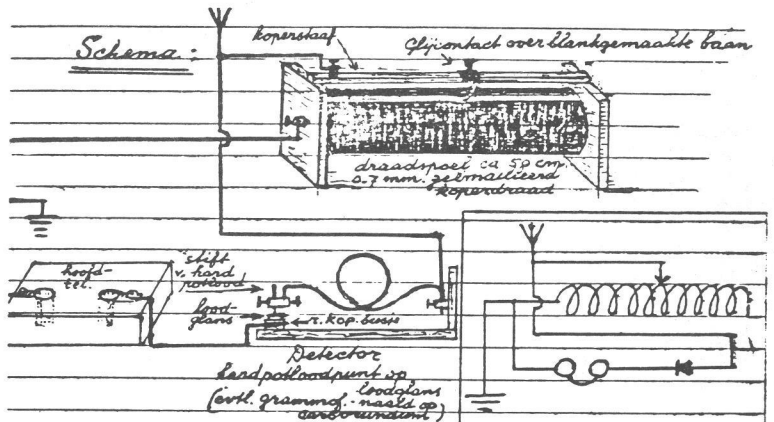 Schema:
koperstaaf
Glijcontact over blankgemaakte baan
draadspoel ca 50 cm.
0.7 mm. geëmailleerd
koperdraad
hoofd-
tel.
stift
v. hard
potlood
lood-
glans
r. kop. busje
Detector
hardpotloodpunt op
loodglans
(evtl. grammof. - naald op
carborundum)